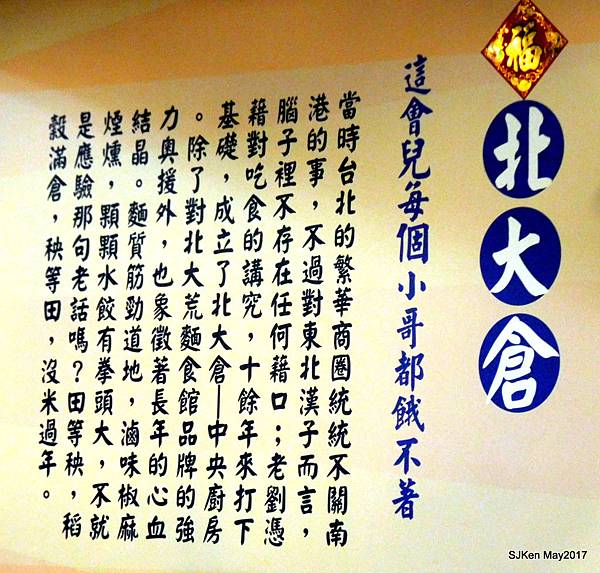 福
北大倉
這會兒每個小哥都餓不著
當時台北的繁華商圈統統不關南
港的事，不過對東北漢子而言，
腦子裡不存在任何藉口；老劉憑
藉對吃食的講究，十餘年來打下
基礎，成立了北大倉—中央廚房
。除了對北大荒麵食館品牌的強
力奧援外，也象徵著長年的心血
結晶。麵質筋勁道地，滷味椒麻
煙燻，顆顆水餃有拳頭大，不就
是應驗那句老話嗎？田等秧，稻
穀滿倉，秧等田，沒米過年。
SJKen May2017